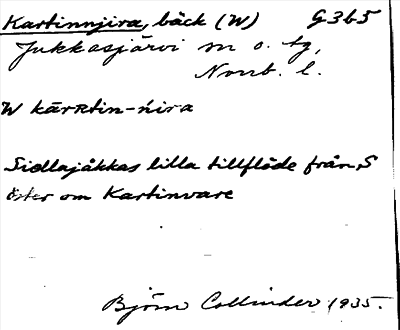 Kartinnjira, bäck (W) G3b5
Jukkasjärvi sn o. tg,
Norrb. l.
W kārRtin-ńira
Sidlajåkkas lilla tillflöde från S
öster om Kartinvare
Björn Collinder 1935.